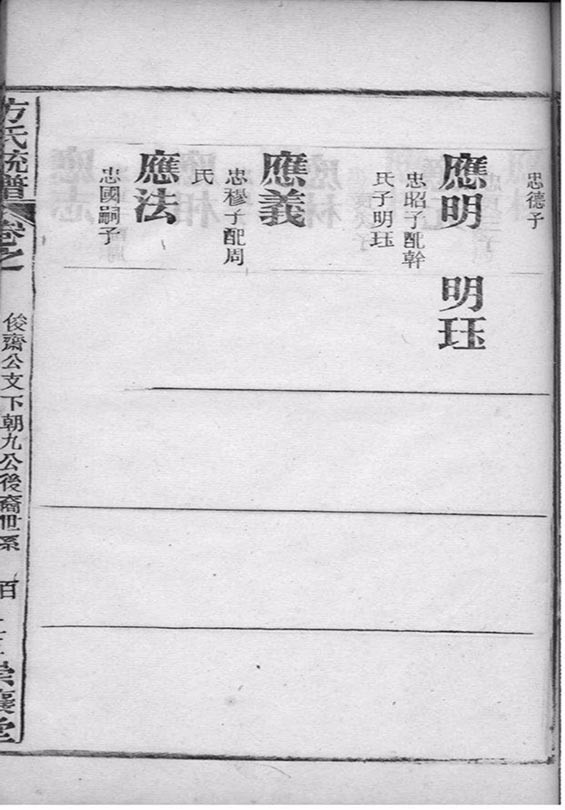 忠德子
應明 明珏
忠昭子配幹
氏子明珏
應義
忠穆子配周
氏
應法
忠國嗣子
方氏流譜 卷之
俊齋公支下朝九公後裔世系 百
崇讓堂